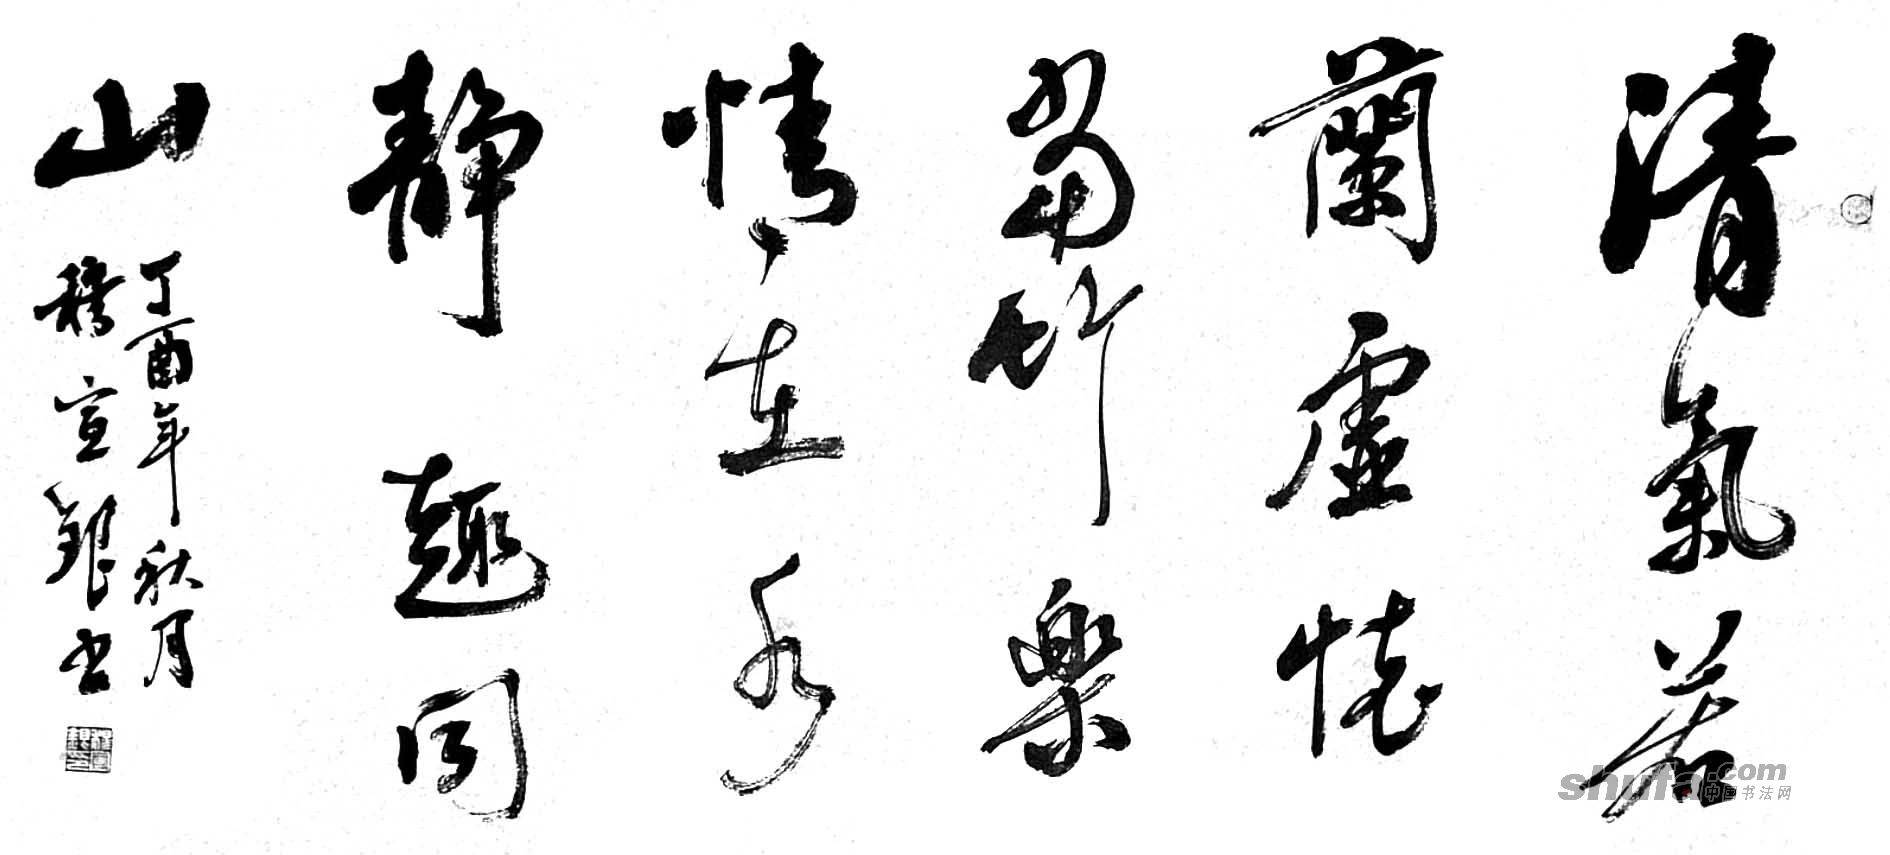 清氣若
蘭虛懷
當竹樂
情在水
靜趣同
山
丁酉年秋月
宣銀书
shufa.com
中国书法网